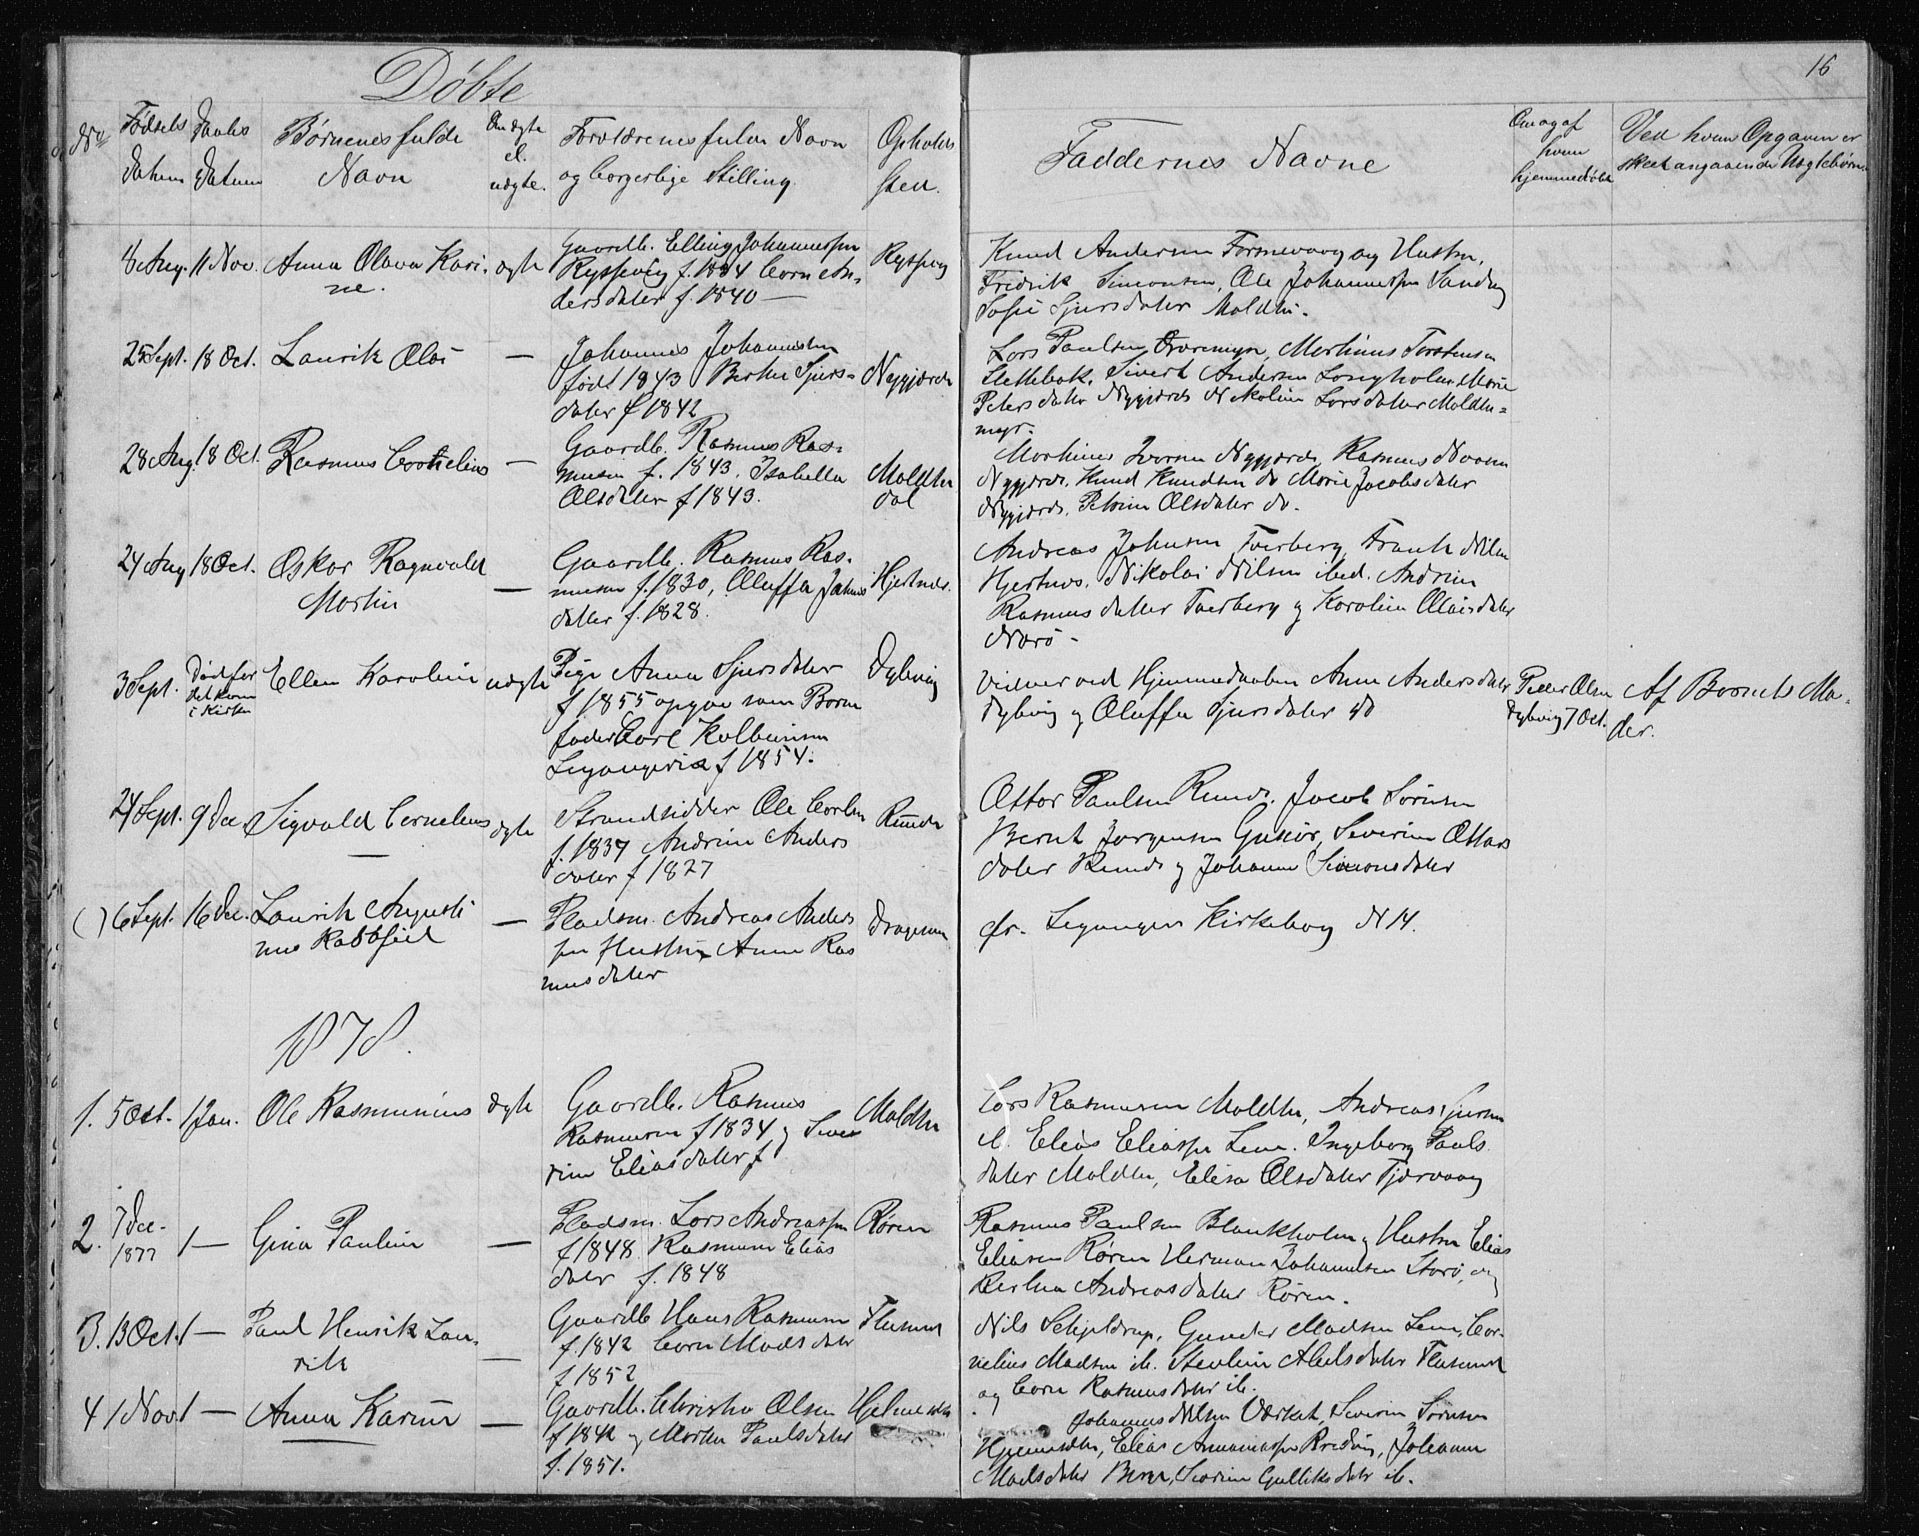 16
Døbte
No
Fødsels Datum
Daabs Datum
Børnenes fulde Navn
Om ægte el. uægte.
Forældrenes fulde Navn og borgerlige Stilling.
Opholds Sted.
Faddernes Navne
Om og af hvem hjemmedøbt
Ved hvem Opgaven er skeet angaaende Uægtebørn
8 Aug. 11 Nov. Anna Olava Kari- ægte
ne.
Gaardb. Elling Johannessen
Rystevig f. 1834
dersdater f. 1840 —
Knud Andersen og Hustru,
Fredrik Simonsen, Ole Johannessen Sandvig
Sofie Sjursdater Moldtu.
25 Sept. 18 Oct. Laurik Olai —
Johannes Johannessen
født 1843 Berthe Sjurs-
dater f 1842
Nygjærde
Lars Paulsen Martinus Torstensen
Slettebak, Sivert Andersen Langholm, Marie
Petersdater Nygjærde Nikoline Larsdater Moldtu-
myr.
28 Aug 18 Oct. Rasmus Cornelius —
Gaardb. Rasmus Ras-
musen f. 1843. Isabella
Olsdater f 1843.
Moldtu
dal
Martinus Iversen Nygjærde, Rasmus
Nygjærde, Knud Knudsen do Marie Jacobsdater
Nygjærde, Petrine Olsdater do.
24 Aug 18 Oct. Oskar Ragnvald
Martin —
Gaardb. Rasmus Ras-
musen f. 1830, Oluffa
dater f. 1828.
Hjertnes.
Andreas Johnsen Tverberg, Frants Nilsen
Hjertnes, Nikolai Nilsen ibid. Andrine
Rasmusdatter Tverberg og Karoline Olaisdater
Nærø -
3 Sept. Død før
det kom
i Kirke
Ellen Karoline uægte
Pige Anna Sjursdater
f 1855 opgav som Barne
fader Carl Kolbeinsen
f 1854.
Dybvig
Vidner ved Hjemmedaaben Anne Andersdater
Dybvig og Oluffa Sjursdater do
Peder Olsen
Dybvig 7 Oct.
Af Barnets Mo-
der.
24 Sept. 9 Dec. Sigvald Cornelius ægte
Strandsidder Ole Carlsen
f. 1837 Andrine Anders
dater f 1827
Runde
Ottar Paulsen Runde, Jacob Sørensen
Bernt Jørgensen Gusiør, Severine Ottars
dater Runde og Johanne Simonsdater
( ) 6 Sept. 16 Dec. Laurits Augusti
nus —
Pladsm. Andreas Anders
sen Hustru Anne Ras
musdater
Dragesun
fr. Leganger Kirkebog N 14.
1878.
1. 5 Oct. 1 Jan. Ole Rasmunius ægte
Gaardb. Rasmus
Rasmusen f 1834 og Seve
rine Eliasdater f
Moldtu
Lars Rasmusen Moldtu, Andreas Sjursen
ib. Elias Eliassen Leine. Ingeborg Pauls
dater Moldtu, Elisa Olsdater Tjærvaag
2. 7 Dec-
1877
1 — Gina Pauline —
Pladsm. Lars Andreassen
f 1848 Rasmine Elias
dater f. 1848
Røren
Rasmus Paulsen Blankholm og Hustru Elias
Eliasen Røren Herman Johannesen Storø, og
Berthe Andreasdater Røren.
3. 13 Oct. 1 — Paul Henrik Lau-
rits —
Gaardb Hans Rasmusen
f. 1842 Corn. Madsdater
f 1852
Flusund
Nils Schjeldrup, Gunder Madsen Leine, Cor-
nelius Madsen ib. Abelsdater Flusund
og Rasmusdater ib.
4 1 Nov. 1 — Anna Karine —
Gaardb. Christen Olsen
f 1842 og Marthe Paulsdater
f. 1851.
Johannes Nilsen Severin Sørensen
Elias Johanne
Madsdater Severine Gulliksdater ib.